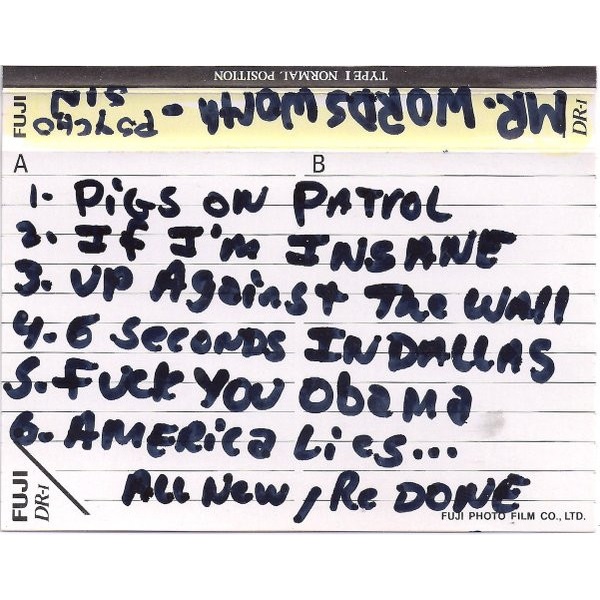 TYPE I NORMAL POSITION
FUJI MR. WORDSWORTH - PSYCHO SIN DR-I
A B
1. PiGS ON PATROL
2. If I'm INSANE
3. UP Against The Wall
4. 6 Seconds IN DALLAS
5. Fuck You Obama
6. AMERICA Lies...
ALL New / Re DONE
FUJI DR-I
FUJI PHOTO FILM CO., LTD.